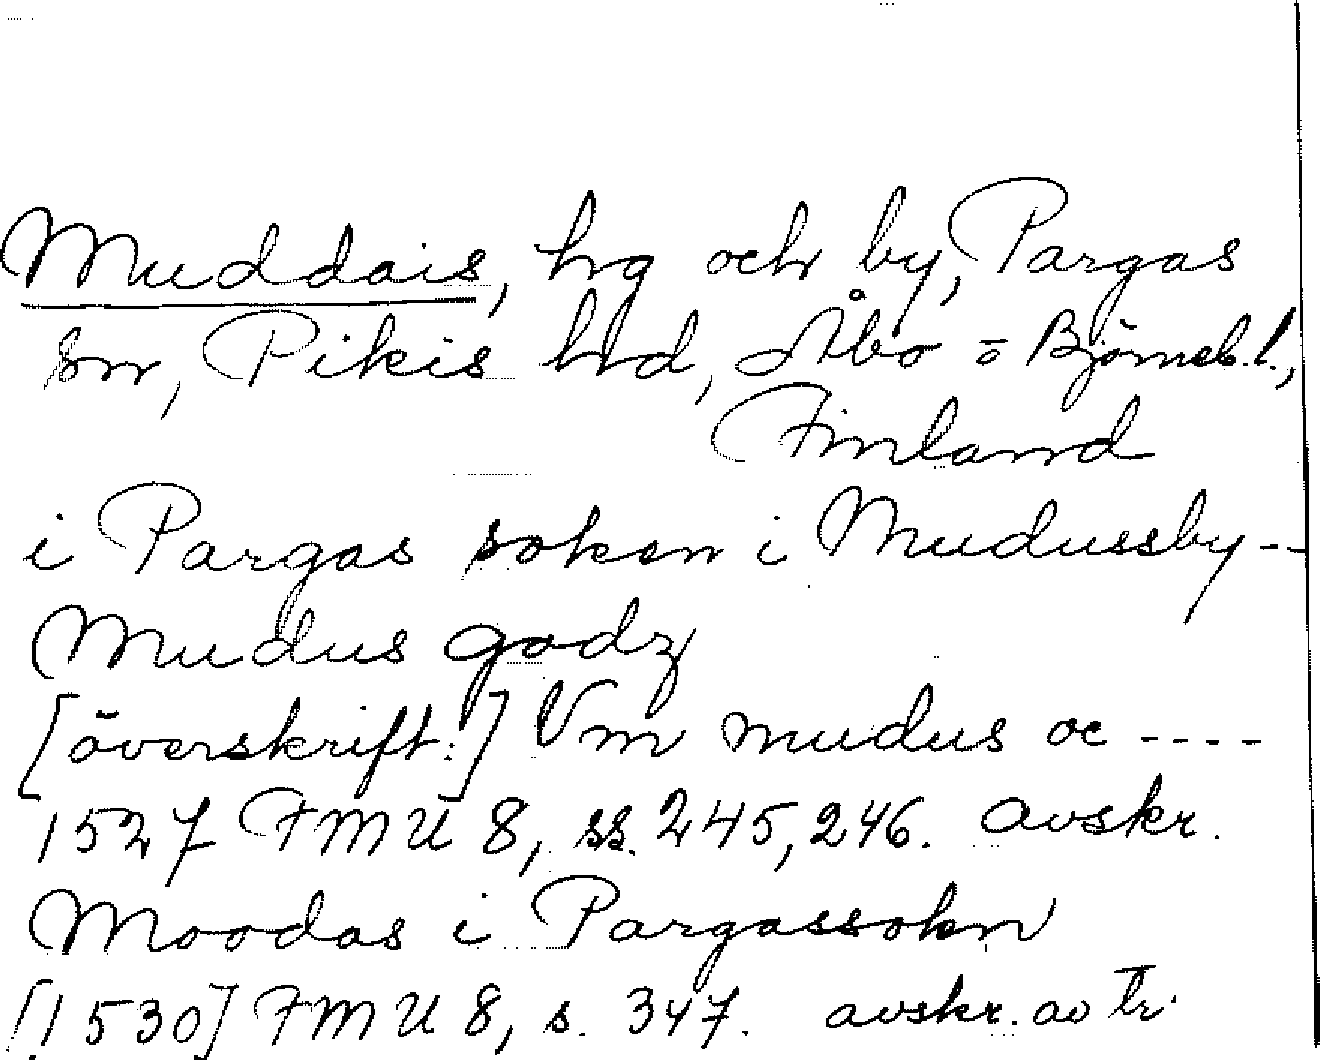 Muddais, hg och by, Pargas
sn, Pikis hd, Åbo o Björneb. l.,
Finland
i Pargas soken i Mudussby --
Mudus godz
[överskrift:] Vm mudus oc ----
1527 FMU 8, ss. 245, 246. avskr.
Moodas i Pargassokn
[1530] FMU 8, s. 347. avskr. av tr.